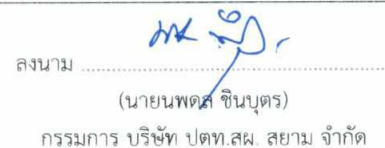 ลงนาม ..........................................
(นายนพดล ชินบุตร)
กรรมการ บริษัท ปตท.สผ. สยาม จำกัด